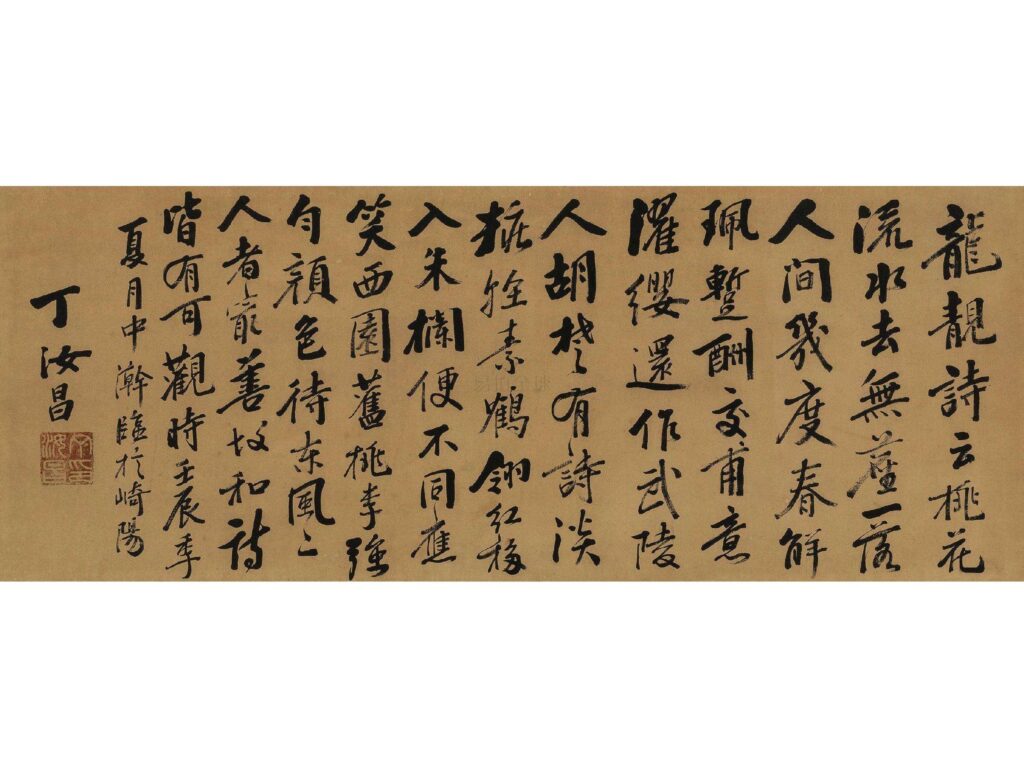 龍靚詩云桃花
流水去無塵一落
人間幾度春解
珮蹔酬交甫意
濯纓還作武陵
人胡楚有詩淡
粧輕素鶴翎紅移
入朱欄便不同應
笑西園舊桃李強
勻顏色待東風二
人者最善於和詩
皆有可觀時壬辰季
夏月中澣臨於崎陽
丁汝昌